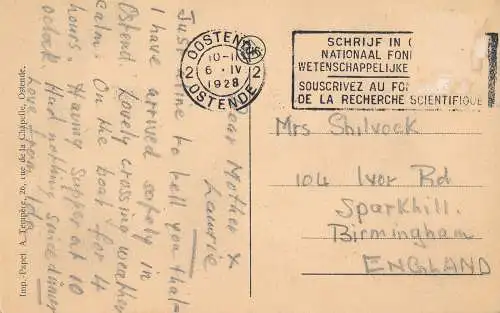 Dear Mother &
Laurie
Just time to tell you that
I have arrived safely in
Ostend. Lovely crossing weather
calm. On the boat for 4
hours. Having supper at 10
oclock. Had nothing since dinner
Love from Ida
Imp.-Papet A. Tempère, 26, rue de la Chapelle, Ostende.
OOSTENDE
2 2
10-11
6 IV
1928
OSTENDE
SCHRIJF IN
NATIONAAL
WETENSCHAPPELIJKE
SOUSCRIVEZ AU
DE LA RECHERCHE SCIENTIFIQUE
Mrs Shilvock
104 Ivor Rd
Sparkhill.
Birmingham
ENGLAND